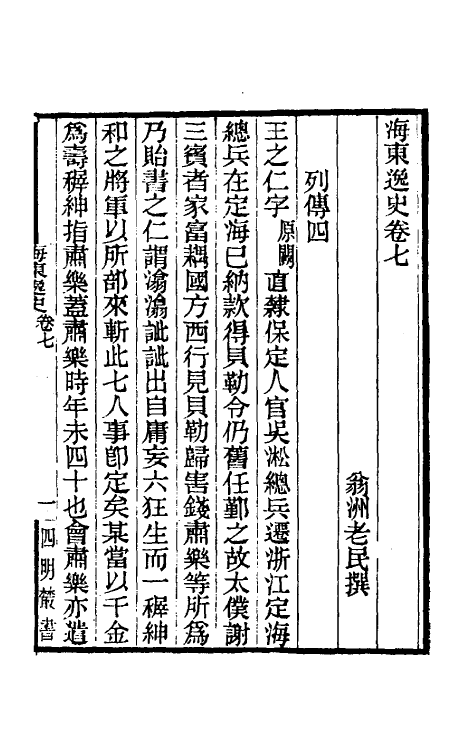 海東逸史卷七
翁洲老民撰
列傳四
王之仁字原闕直隸保定人官吳淞總兵遷浙江定海
總兵在定海已納款得貝勒令仍舊任鄞之故太僕謝
三賓者家富耦國方西行見貝勒歸害錢肅樂等所爲
乃貽書之仁謂潝潝訿訿出自庸妄六狂生而一穉紳
和之將軍以所部來斬此七人事卽定矣某當以千金
爲壽穉紳指肅樂蓋肅樂時年未四十也會肅樂亦遣
海東逸史卷七
一
四明叢書